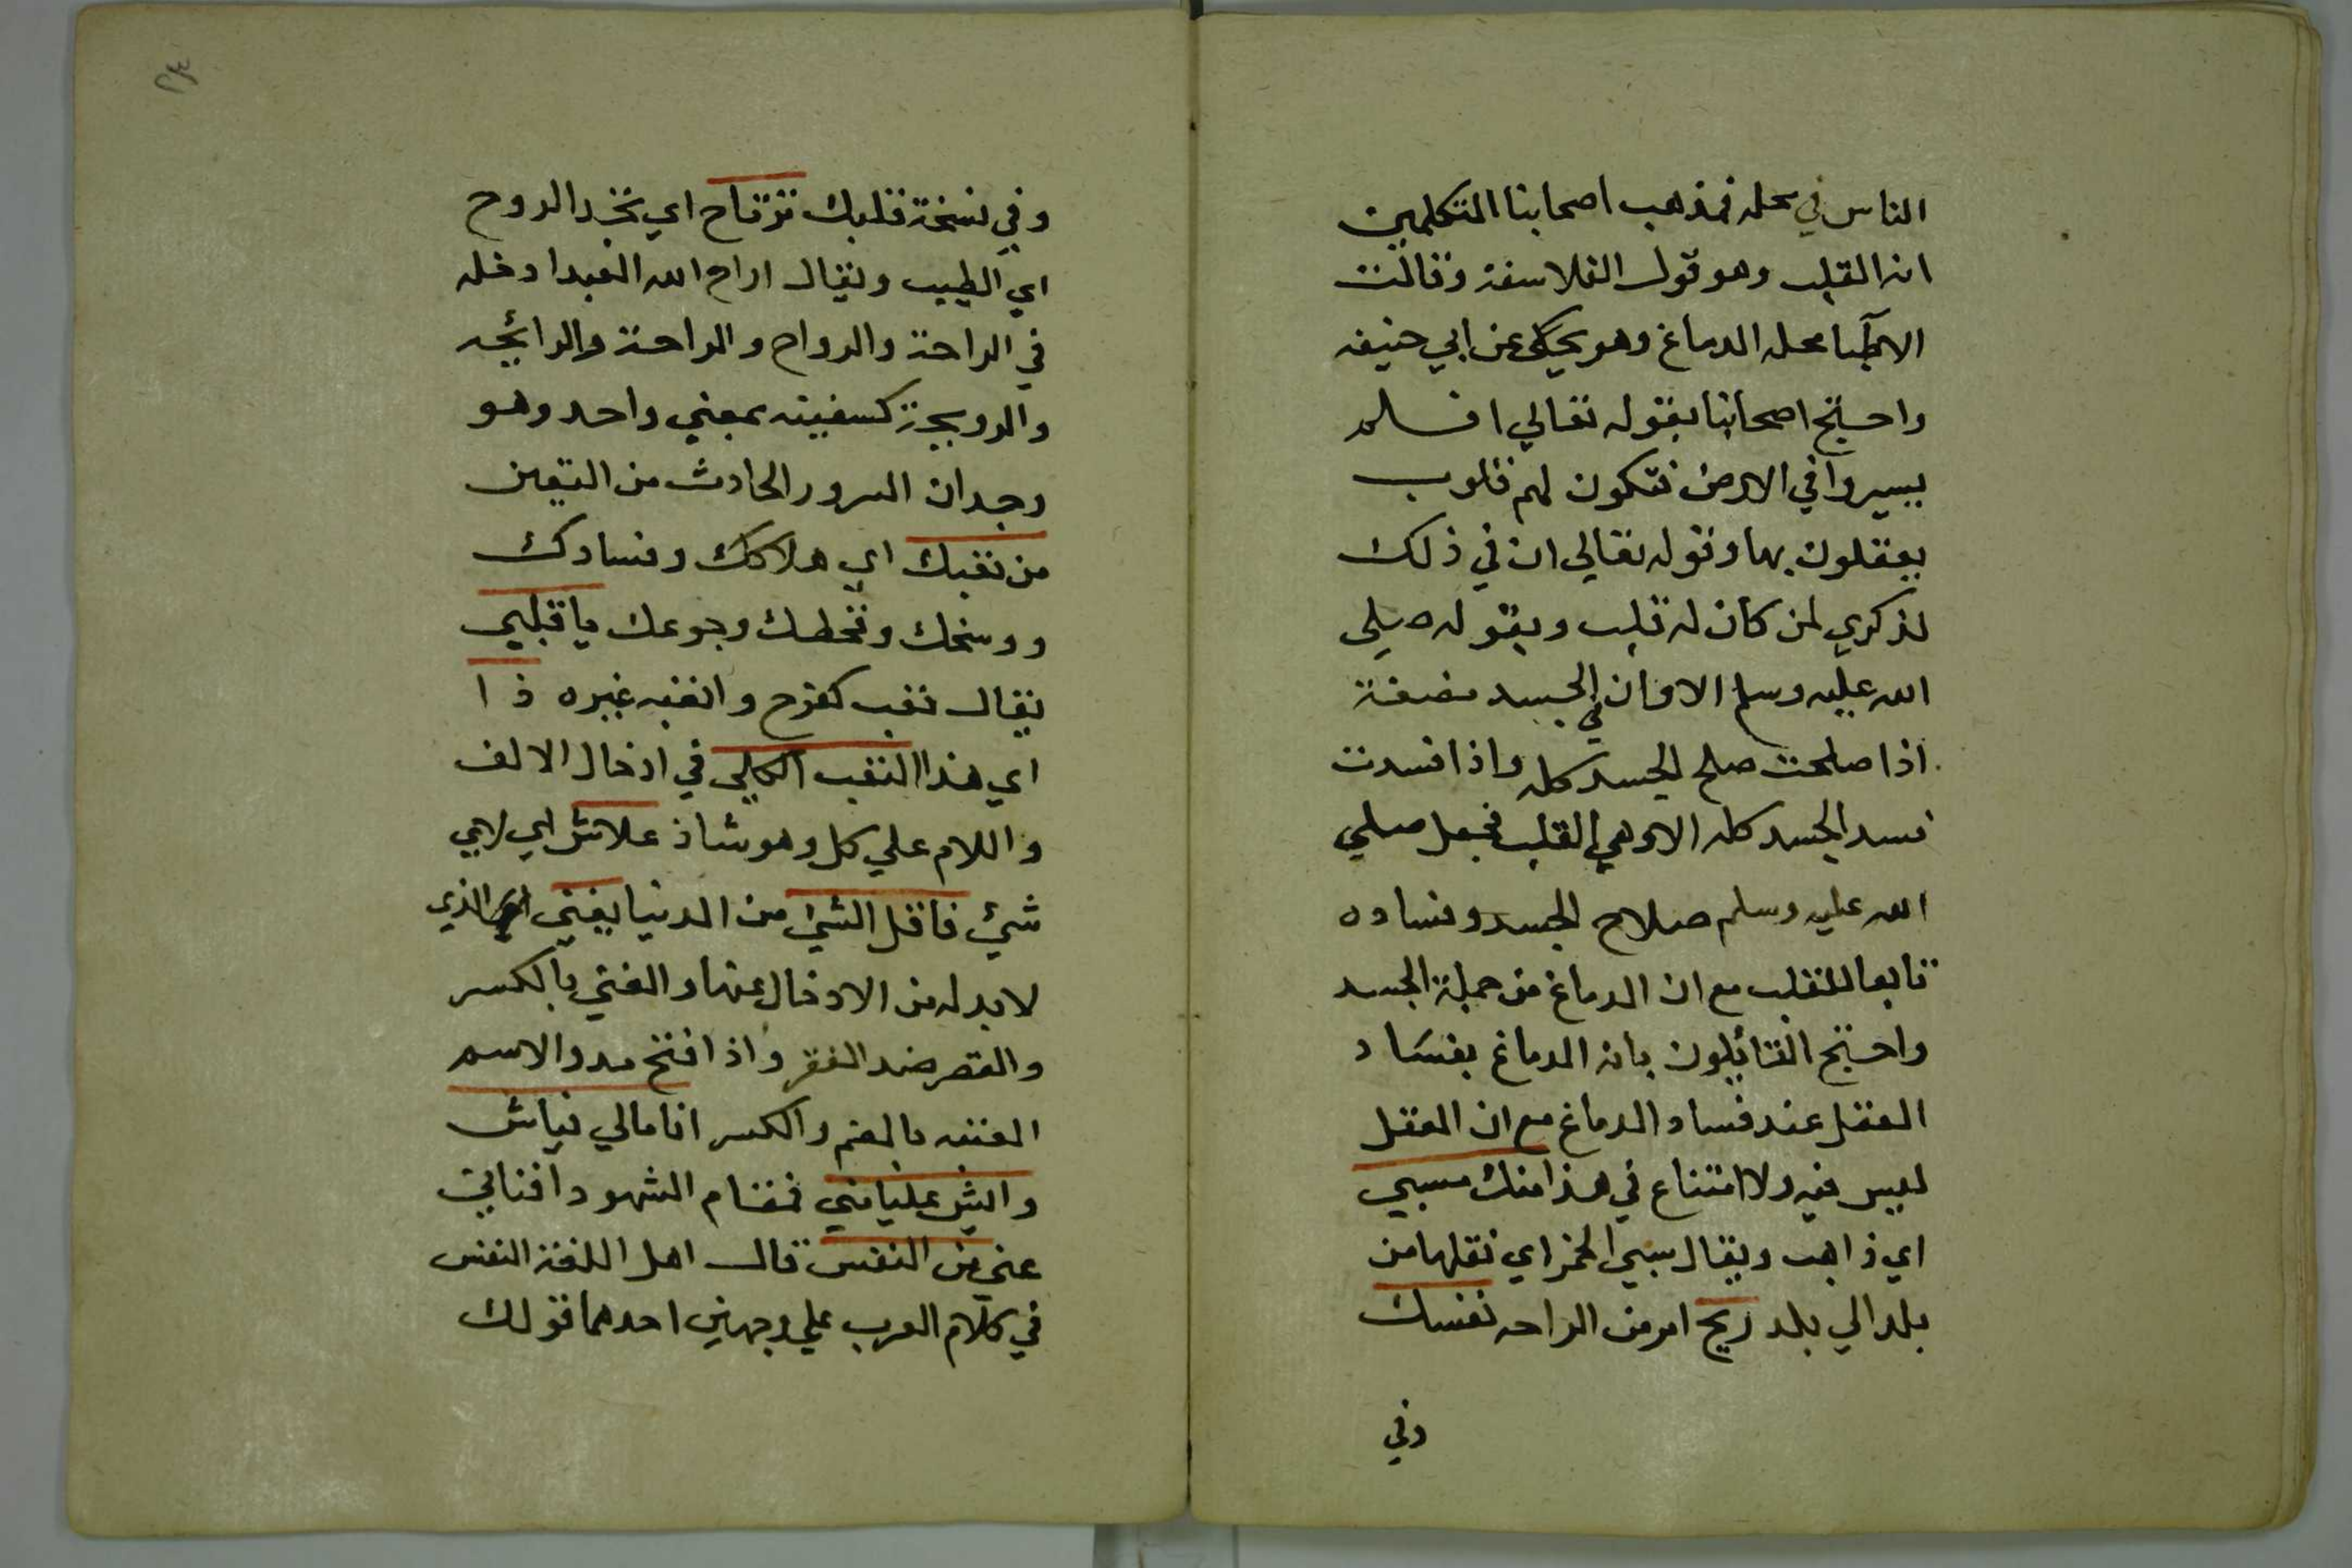 الناس في محله فمذهب اصحابنا المتكلمين
انه القلب وهو قول الفلاسفة وقالت
الاطبآ محله الدماغ وهو يحكى عن ابي حنيفه
واحتج اصحابنا بقوله تعالي افلم
يسيروا في الارض فتكون لهم قلوب
يعقلون بها وقوله تعالي ان في ذلك
لذكري لمن كان له قلب وبقوله صلي
الله عليه وسلم الا وان في الجسد مضغة
اذا صلحت صلح الجسد كله واذا فسدت
فسد الجسد كله الا وهي القلب فجعل صلي
الله عليه وسلم صلاح الجسد وفساده
تابعا للقلب مع ان الدماغ من جملة الجسد
واحتج القائلون بانه الدماغ بفساد
العقل عند فساد الدماغ مع ان العقل
ليس فيه ولا امتناع في هذا منك مسبي
اي ذاهب ويقال سبي الخمر اي نقلها من
بلد الي بلد ريح امر من الراحه نفسك
وفي
٢٣
وفي نسخة قلبك ترتاح اي تجد الروح
اي الطيب ويقال اراح الله العبد ادخله
في الراحة والرواح والراحة والرائحه
والرويحة كسفينه بمعني واحد وهو
وجدان السرور الحادث من اليقين
من تغبك اي هلاكك وفسادك
ووسخك وقحطك وجوعك يا قبلبي
يقال تغب كفرح واتغبه غيره ذا
اي هذا التغب الكلي في ادخال الالف
واللام علي كل وهو شاذ علاش اي لاي
شئ فاقل الشئ من الدنيا يغني الذي
لا بد له من الادخال عنها والغني بالكسر
والقصر ضد الفقر واذا فتح مد والاسم
الغنيه بالضم والكسر انا مالي فياش
وايش عليا مني فمقام الشهود افناني
عني من النفس قال اهل اللغة النفس
في كلام العرب علي وجهين احدهما قولك